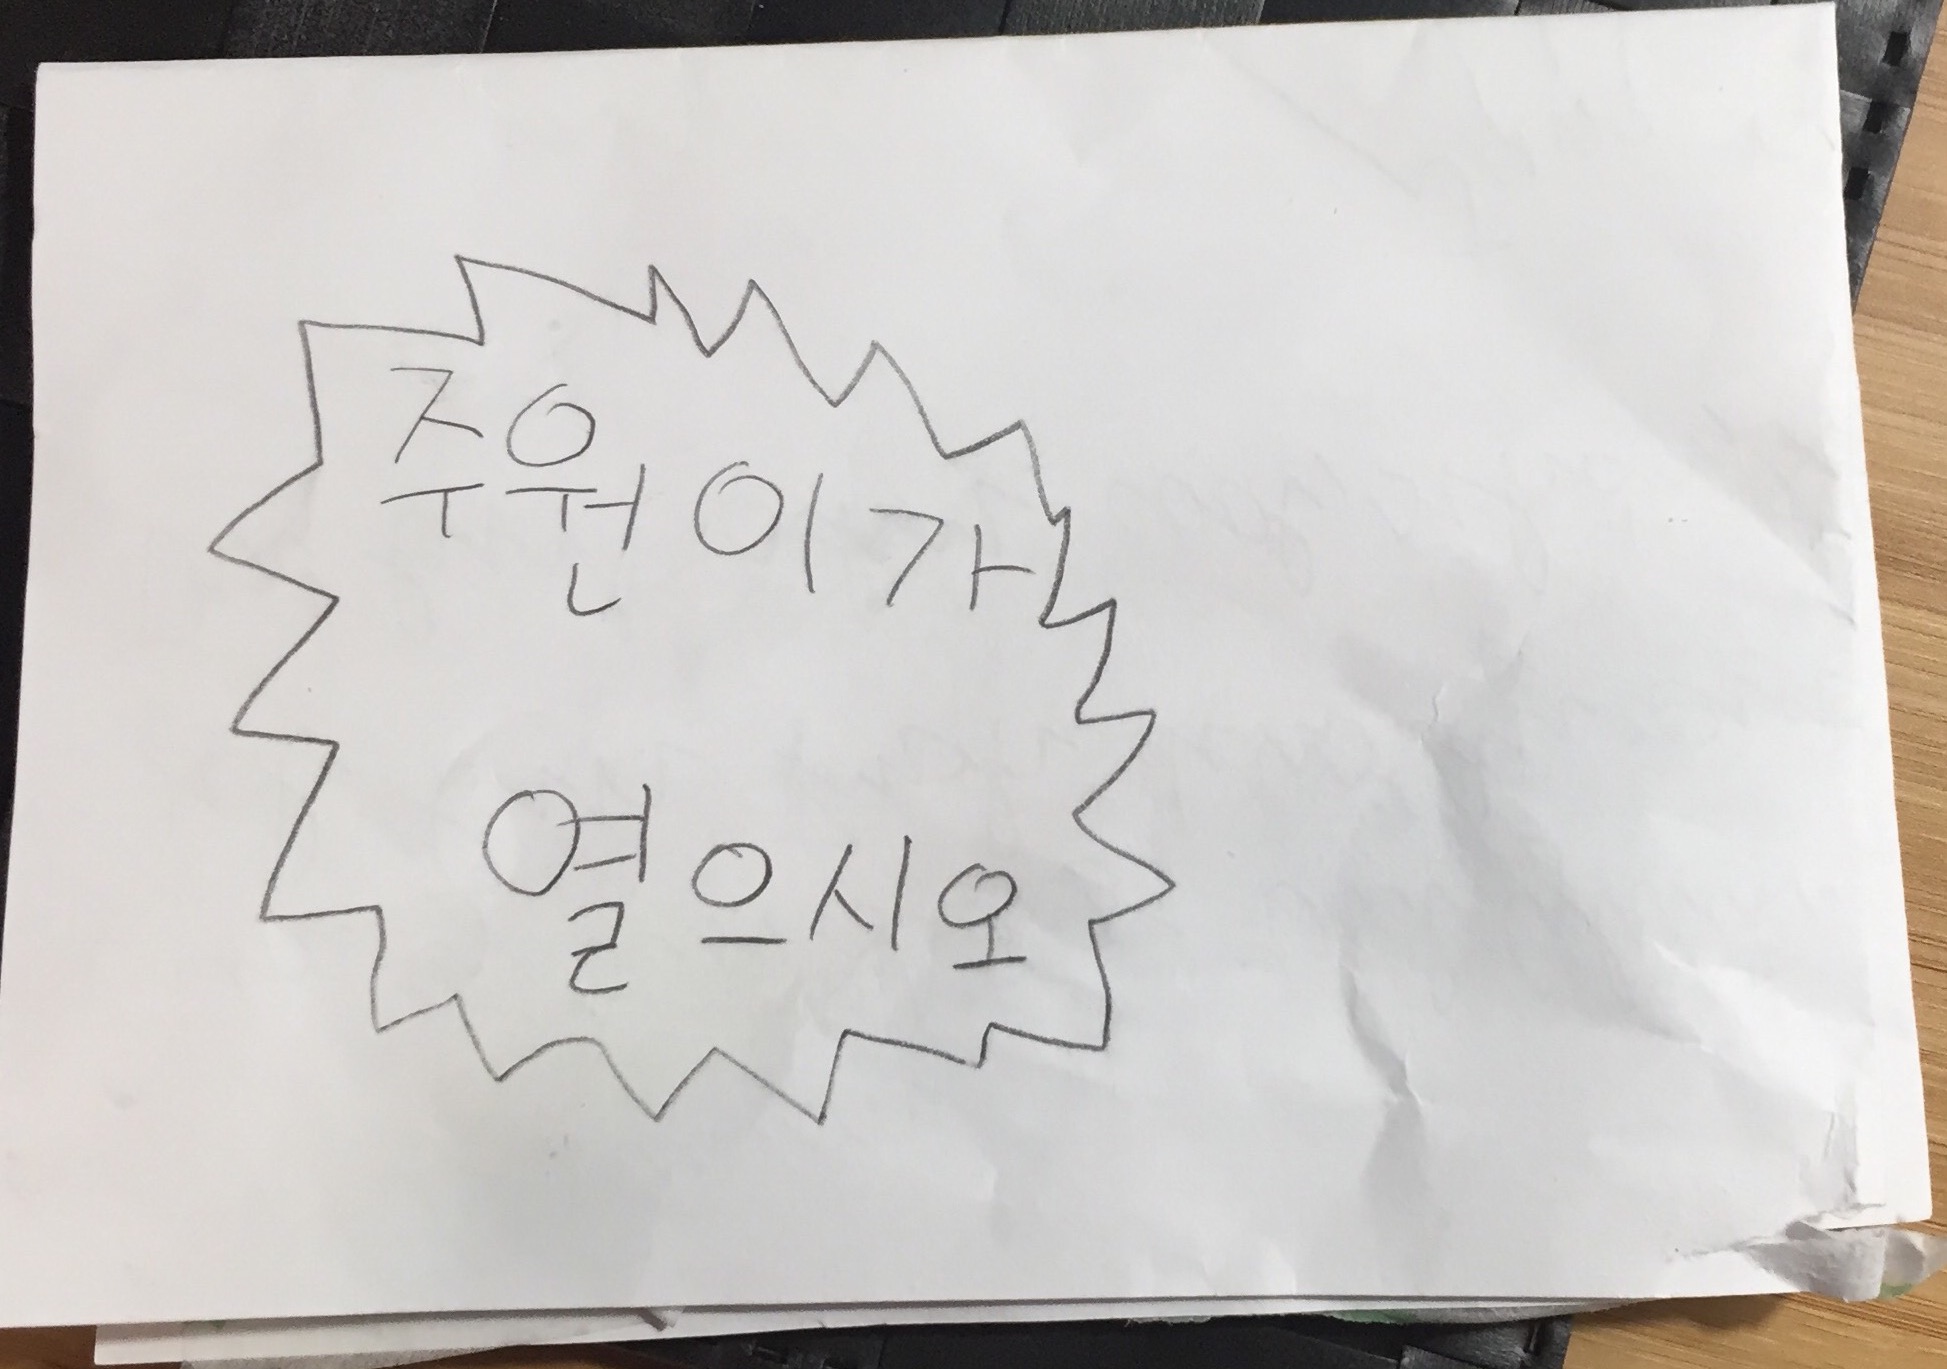 주원이가
열으시오